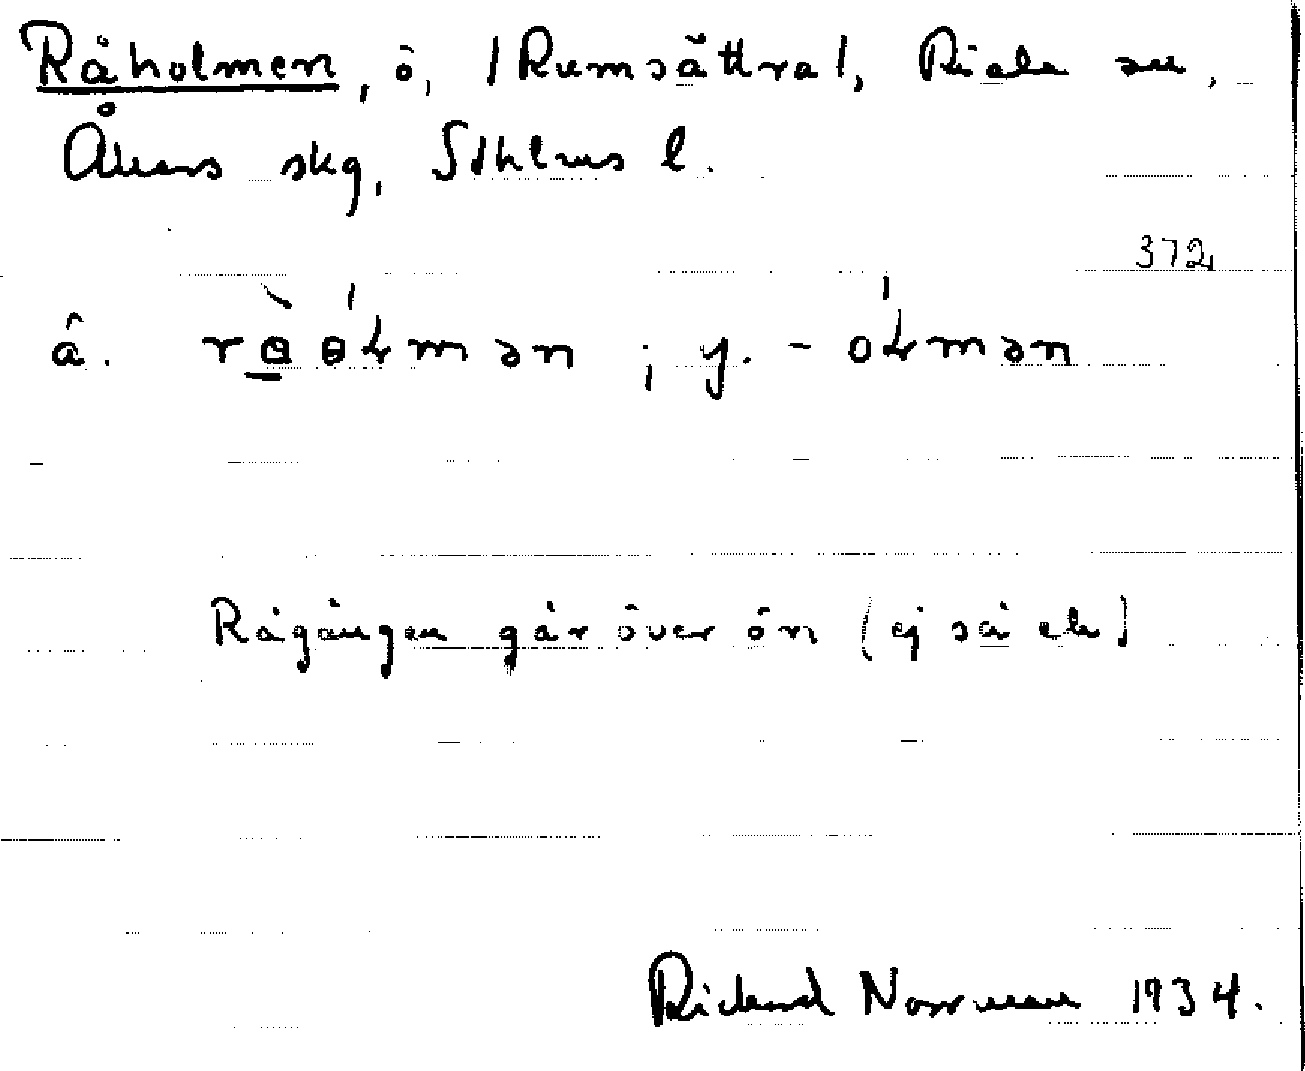 Råholmen, ö, /Rumsättra/, Riala sn,
Åkers skg, Sthlms l.
372
â. rɵ̠̀ɵ́ɫmən ; y. -óɫmən
Rågången går över ön (ej så ek)
Rickard Norrman 1934.